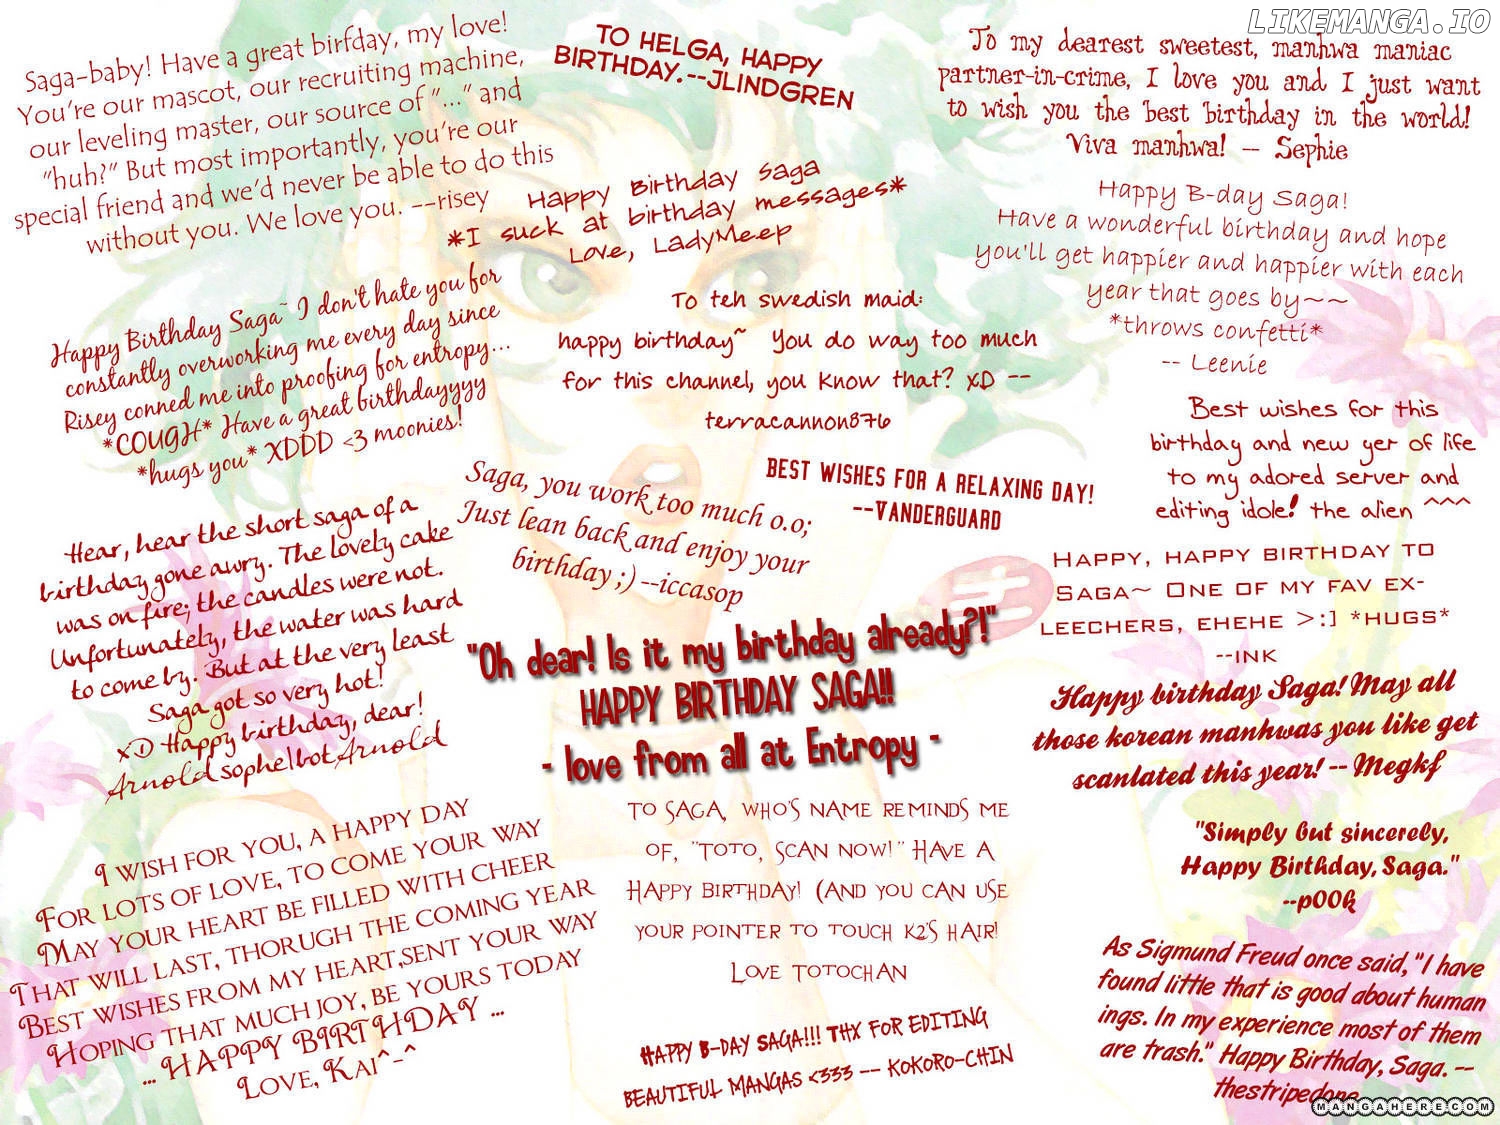 LIKEMANGA.IO
Saga-baby! Have a great birfday, my love!
You're our mascot, our recruiting machine,
our leveling master, our source of "..." and
"huh?" But most importantly, you're our
special friend and we'd never be able to do this
without you. We love you. --risey
TO HELGA, HAPPY
BIRTHDAY.--JLINDGREN
To my dearest sweetest, manhwa maniac
partner-in-crime, I love you and I just want
to wish you the best birthday in the world!
Viva manhwa! -- Sephie
Happy Birthday Saga
*I suck at birthday messages*
Love, LadyMeep
Happy B-day Saga!
Have a wonderful birthday and hope
you'll get happier and happier with each
year that goes by~~
*throws confetti*
-- Leenie
Happy Birthday Saga~ I don't hate you for
constantly overworking me every day since
Risey conned me into proofing for entropy...
*COUGH* Have a great birthdayyyy
*hugs you* XDDD <3 moonies!
To teh swedish maid:
happy birthday~ You do way too much
for this channel, you know that? xD --
terracannon876
Best wishes for this
birthday and new yer of life
to my adored server and
editing idole! the alien ^^^
Saga, you work too much o.o;
Just lean back and enjoy your
birthday ;) --iccasop
BEST WISHES FOR A RELAXING DAY!
--VANDERGUARD
Hear, hear the short saga of a
birthday gone awry. The lovely cake
was on fire; the candles were not.
Unfortunately, the water was hard
to come by. But at the very least
Saga got so very hot!
xD Happy birthday, dear!
Arnold sophelbot Arnold
HAPPY, HAPPY BIRTHDAY TO
SAGA~ ONE OF MY FAV EX-
LEECHERS, EHEHE >:] *HUGS*
--INK
"Oh dear! Is it my birthday already?!"
HAPPY BIRTHDAY SAGA!!!
- love from all at Entropy -
Happy birthday Saga! May all
those korean manhwas you like get
scanlated this year! -- Megkf
I WISH FOR YOU, A HAPPY DAY
FOR LOTS OF LOVE, TO COME YOUR WAY
MAY YOUR HEART BE FILLED WITH CHEER
THAT WILL LAST, THORUGH THE COMING YEAR
BEST WISHES FROM MY HEART,SENT YOUR WAY
HOPING THAT MUCH JOY, BE YOURS TODAY
... HAPPY BIRTHDAY ...
LOVE, KAI^-^
TO SAGA, WHO'S NAME REMINDS ME
OF, "TOTO, SCAN NOW!" HAVE A
HAPPY BIRTHDAY! (AND YOU CAN USE
YOUR POINTER TO TOUCH K2'S HAIR!
LOVE TOTOCHAN
"Simply but sincerely,
Happy Birthday, Saga."
--p00k
HAPPY B-DAY SAGA!!! THX FOR EDITING
BEAUTIFUL MANGAS <333 -- KOKORO-CHIN
As Sigmund Freud once said,"I have
found little that is good about human
ings. In my experience most of them
are trash." Happy Birthday, Saga. --
thestripedone
MANGAHERE.COM